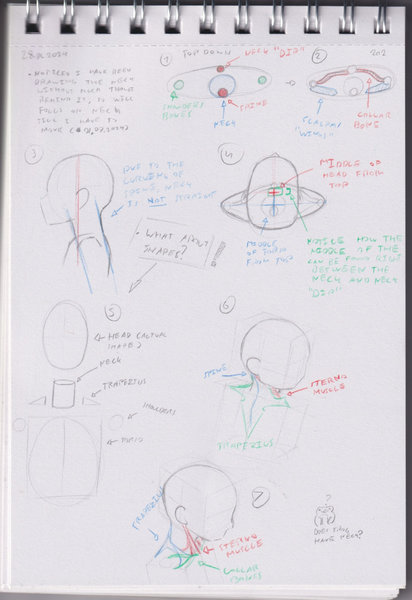 28.01.2024
• NOTICED I HAVE BEEN
DRAWING THE NECK
WITHOUT MUCH THOUGHT
BEHIND IT, SO WILL
FOCUS ON NECK
TILL I HAVE TO
MOVE
1
TOP DOWN
NECK "DIP"
SHOULDERS
BONES
NECK
SPINE
2
CLAVICAL
"WINGS"
COLLAR
BONE
3
DUE TO THE
CURVING OF
SPINE, NECK
IS NOT STRAIGHT
MIDDLE OF
HEAD FROM
TOP
MIDDLE
OF TORSO
FROM TOP
NOTICE HOW THE
MIDDLE OF THE
CAN BE FOUND
BETWEEN THE
NECK AND NECK
"DIP"
• WHAT ABOUT
SHAPES?
!
5
HEAD (ACTUAL
SHAPE)
NECK
TRAPEZIUS
SHOULDERS
TORSO
6
SPINE
STERNO
MUSCLE
TRAPEZIUS
7
TRAPEZIUS
STERNO
MUSCLE
COLLAR
BONES
?
DOES THIS
HAVE NECK?